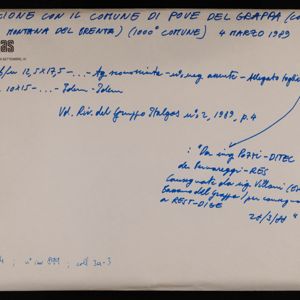 ZIONE CON IL COMUNE DI POVE DEL GRAPPA (CO
MONTANA DEL BRENTA) (1000° COMUNE) 4 MARZO 1989
as
b/n 12,5x17,5 -... - Ag. sconosciuta - n° neg. assente - Allegato foglio
10x15 -... - Idem - Idem
Vd. Riv. del Gruppo Italgas n° 2, 1989, p. 4
: "Da ing. Pozzi - DITEC
Consegnate da ing. Villani
Bassano del Grappa) per consegna
a REST-DIGE
n° inv 899 ; coll 30-3